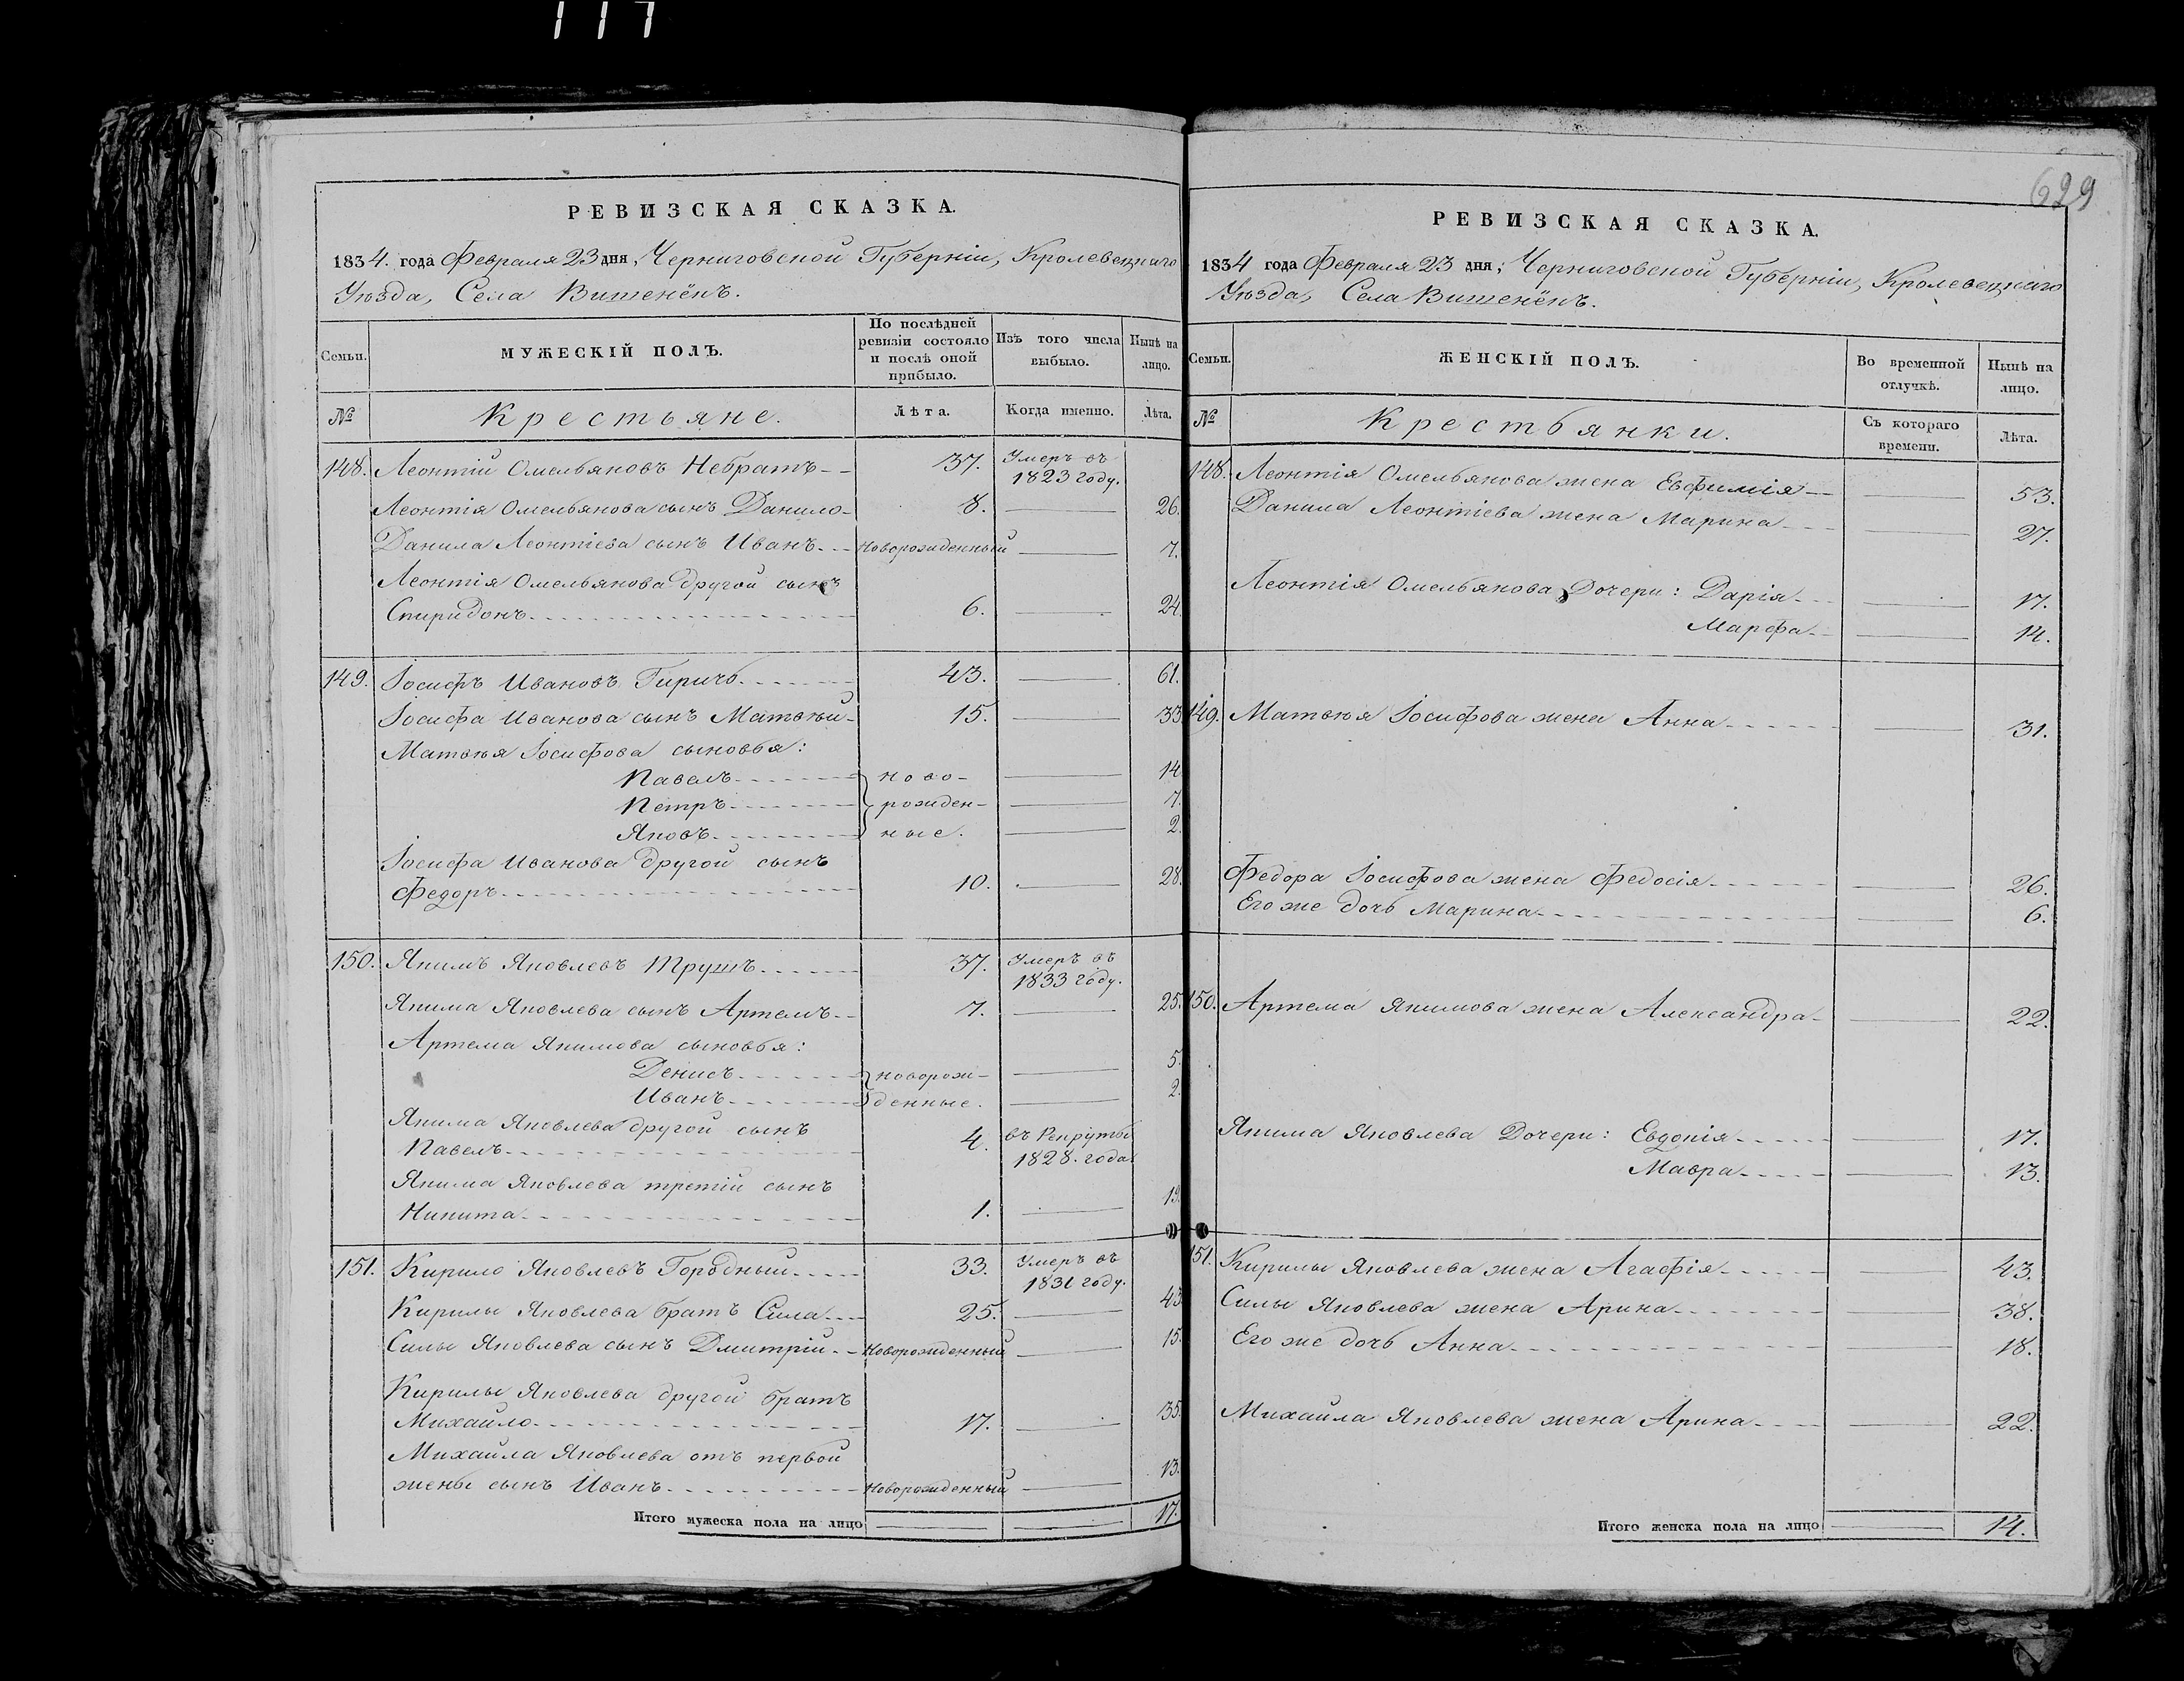 117
РЕВИЗСКАЯ СКАЗКА.
1834. года Февраля 23 дня, Черниговской Губерніи, Кролевецкаго
Уѣзда, Села Вишенёкъ.
Семьи.
МУЖЕСКІЙ ПОЛЪ.
По послѣдней ревизіи состояло и послѣ оной прибыло.
Изъ того числа выбыло.
Нынѣ на лицо.
№
Крестьяне.
Лѣта.
Когда именно.
Лѣта.
148. Леонтій Омельяновъ Небратъ 37. Умеръ въ
1823 году.
Леонтія Омельянова сынъ Данило 8. 26.
Данила Леонтіева сынъ Иванъ Новорожденный 7.
Леонтія Омельянова другой сынъ
Спиридонъ 6. 24.
149. Іосифъ Ивановъ Гиричь 43. 61.
Іосифа Иванова сынъ Матвѣй 15. 33.
Матвѣя Іосифова сыновья:
Павелъ ново- 14.
Петръ рожден- 7.
Яковъ ные. 2.
Іосифа Иванова другой сынъ
Федоръ 10. 28.
150. Якимъ Яковлевъ Трушъ 37. Умеръ въ
1833 году.
Якима Яковлева сынъ Артемъ 7. 25.
Артема Якимова сыновья:
Денисъ новорож- 5.
Иванъ денные. 2.
Якима Яковлева другой сынъ
Павелъ 4. въ Рекруты
1828. года
Якима Яковлева третій сынъ
Никита 1. 19.
151. Кирило Яковлевъ Городный 33. Умеръ въ
1831 году.
Кирилы Яковлева братъ Сила 25. 43.
Силы Яковлева сынъ Дмитрій Новорожденный 15.
Кирилы Яковлева другой братъ
Михайло 17. 35.
Михайла Яковлева отъ первой
жены сынъ Иванъ Новорожденный 13.
Итого мужеска пола на лицо 17.
629
РЕВИЗСКАЯ СКАЗКА.
1834 года Февраля 23 дня; Черниговской Губерніи, Кролевецкаго
Уѣзда, Села Вишенёкъ.
Семьи.
ЖЕНСКІЙ ПОЛЪ.
Во временной отлучкѣ.
Нынѣ на лицо.
№
Крестьянки.
Съ котораго времени.
Лѣта.
148. Леонтія Омельянова жена Евфимія 53.
Данила Леонтіева жена Марина 27.
Леонтія Омельянова Дочери: Дарія 17.
Марфа 14.
149. Матвѣя Іосифова жена Анна 31.
Федора Іосифова жена Федосія 26.
Его же дочь Марина 6.
150. Артема Якимова жена Александра 22.
Якима Яковлева Дочери: Евдокія 17.
Мавра 13.
151. Кирилы Яковлева жена Агафія 43.
Силы Яковлева жена Арина 38.
Его же дочь Анна 18.
Михайла Яковлева жена Арина 22.
Итого женска пола на лицо 14.